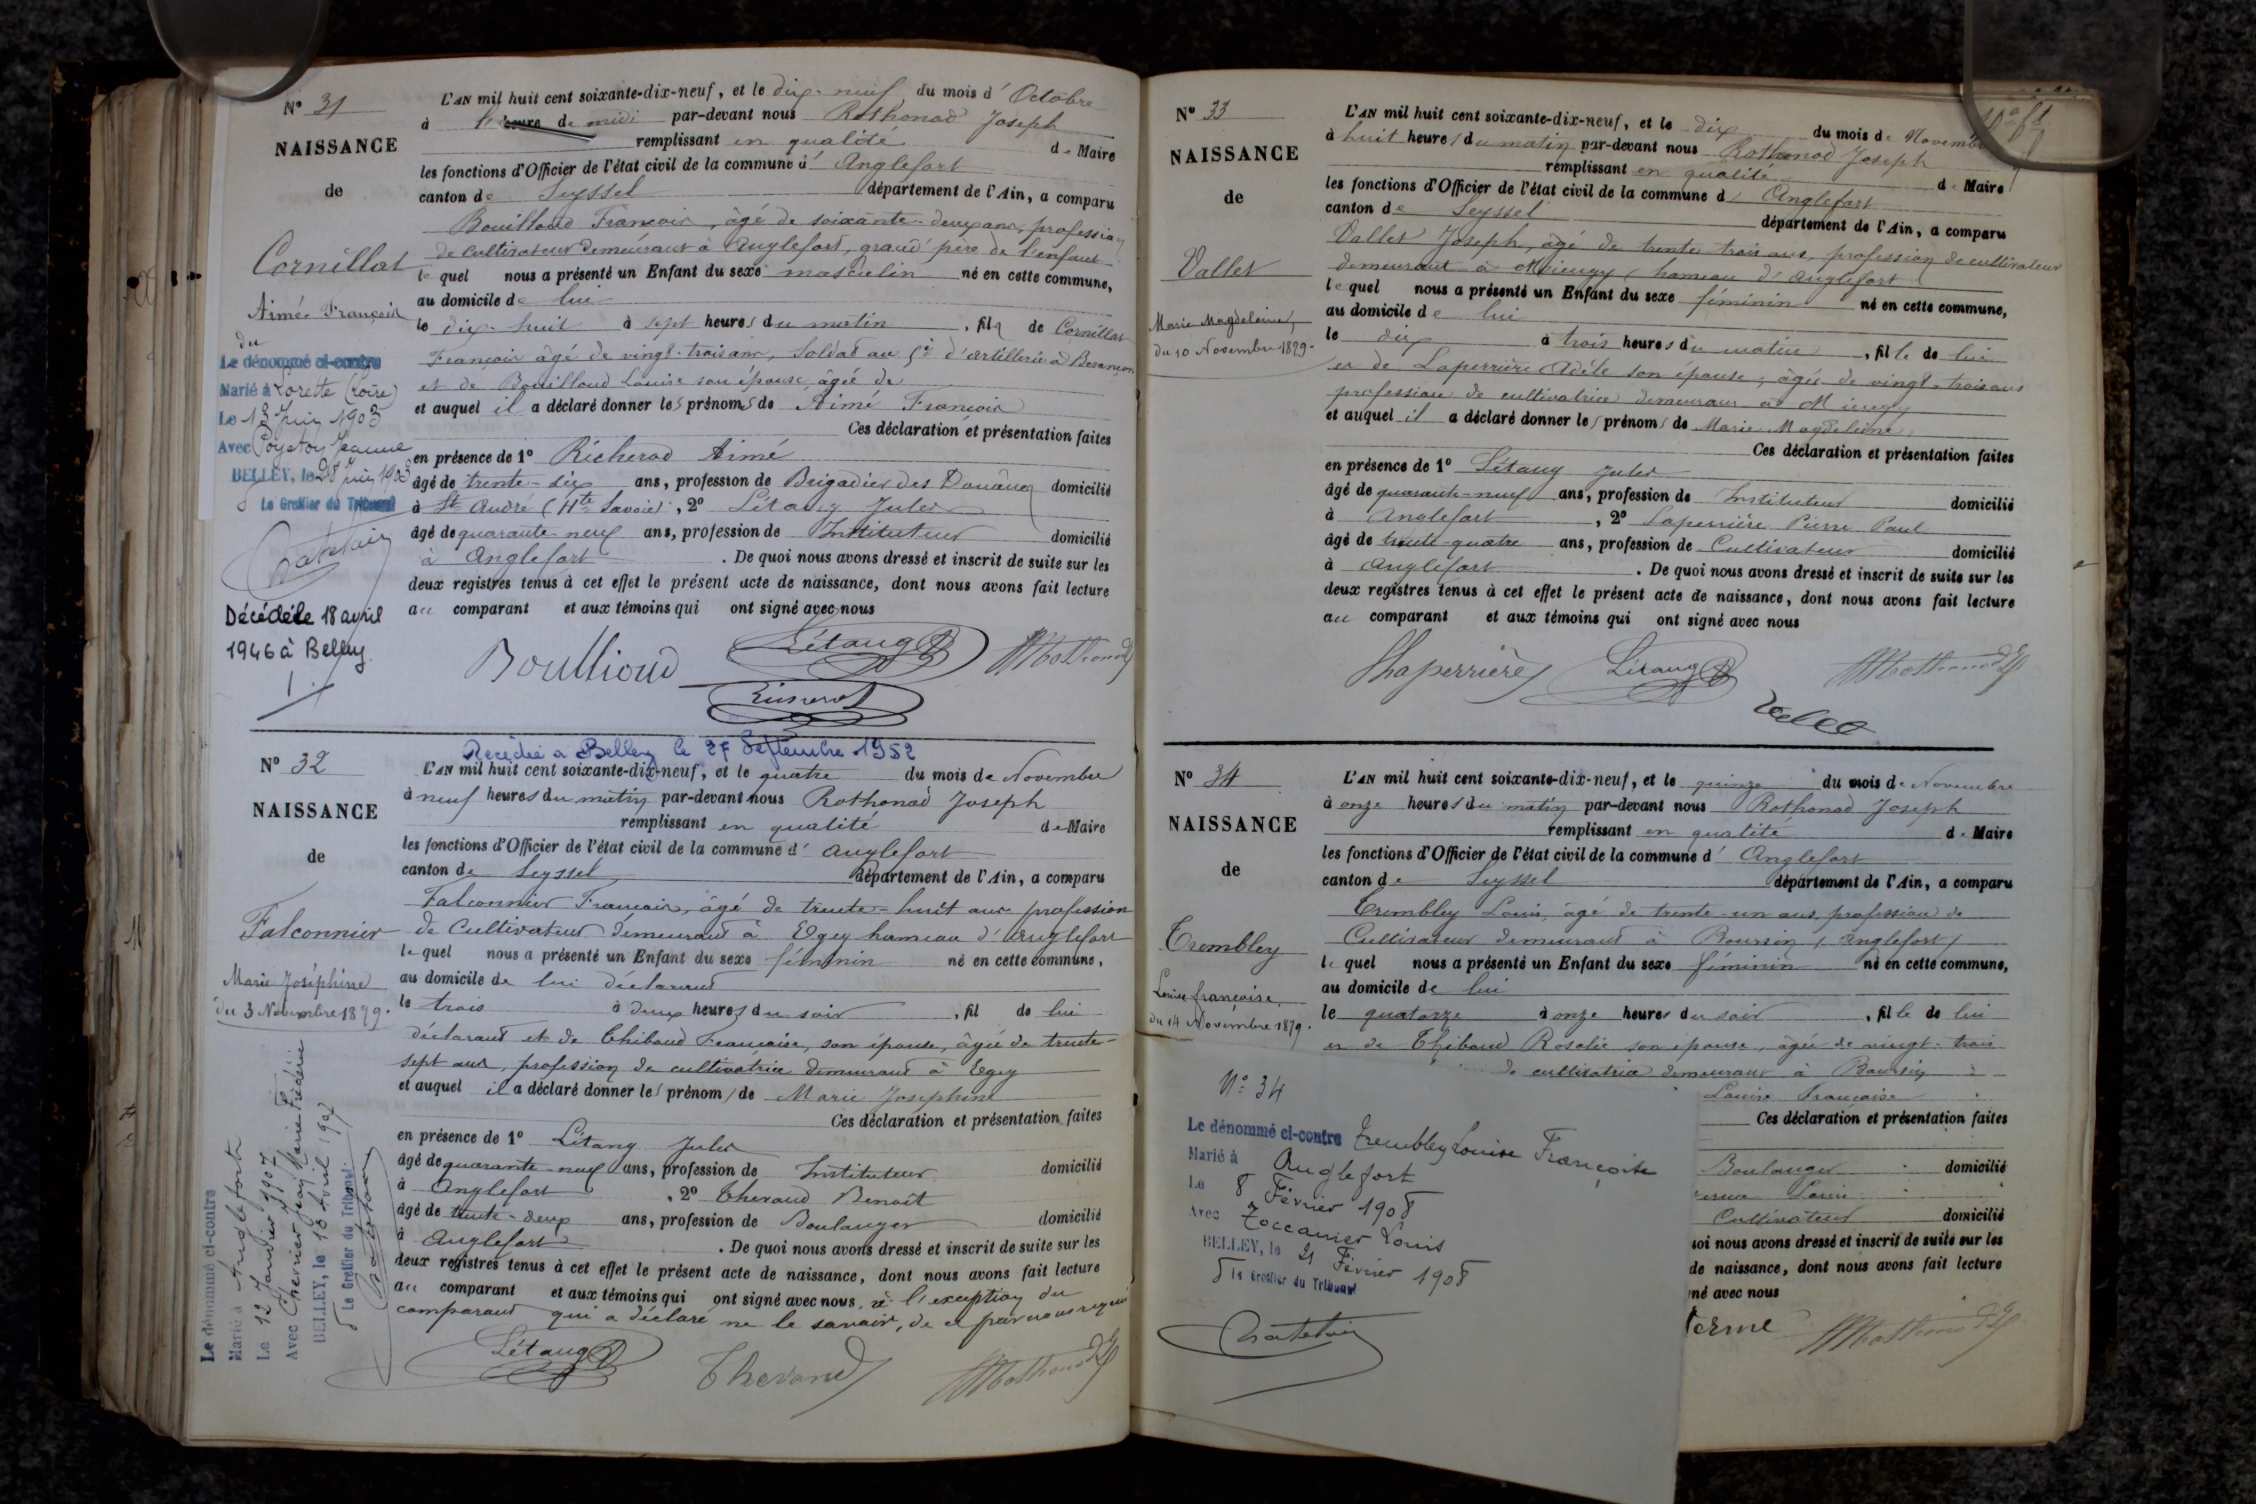 N° 31
NAISSANCE
de
Cornillat
Aimé François
du
Le dénommé ci-contre
Marié à Lorette (Loire)
Le 13 Juin 1903
Avec Poyeton Jeanne
BELLEY, le 28 Juin 1903
Le Greffier du Tribunal
Décédé le 18 avril
1946 à Belley
L'AN mil huit cent soixante-dix-neuf, et le dix-neuf du mois d'Octobre
à heure de midi par-devant nous Rothonod Joseph
remplissant en qualité de Maire
les fonctions d'Officier de l'état civil de la commune d'Anglefort
canton de Seyssel département de l'Ain, a comparu
Bouilloud François, âgé de soixante-deux ans, profession
de cultivateur demeurant à Anglefort, grand'père de l'enfant
lequel nous a présenté un Enfant du sexe masculin né en cette commune,
au domicile de lui
le dix-huit à sept heures du matin, fils de Cornillat
François âgé de vingt-trois ans, Soldat au 5e d'artillerie à Besançon
et de Bouilloud Louise son épouse, âgée de
et auquel il a déclaré donner les prénoms de Aimé François
Ces déclaration et présentation faites
en présence de 1° Richerod Aimé
âgé de trente-six ans, profession de Brigadier des Douanes domicilié
à St André (Hte Savoie), 2° Létang Jules
âgé de quarante-neuf ans, profession de Instituteur domicilié
à Anglefort. De quoi nous avons dressé et inscrit de suite sur les
deux registres tenus à cet effet le présent acte de naissance, dont nous avons fait lecture
au comparant et aux témoins qui ont signé avec nous
Bouilloud Létang Rothonod
N° 32
NAISSANCE
de
Falconnier
Marie Joséphine
du 3 Novembre 1879.
Le dénommé ci-contre
Marié à Anglefort
Le 12 Janvier 1907
Avec Chevrier Jean Marie Frédéric
BELLEY, le 13 Avril 1907
Le Greffier du Tribunal
Décédée à Belley le 27 Septembre 1952
L'AN mil huit cent soixante-dix-neuf, et le quatre du mois de Novembre
à neuf heures du matin par-devant nous Rothonod Joseph
remplissant en qualité de Maire
les fonctions d'Officier de l'état civil de la commune d'Anglefort
canton de Seyssel département de l'Ain, a comparu
Falconnier François, âgé de trente-huit ans profession
de Cultivateur demeurant à Egey hameau d'Anglefort
lequel nous a présenté un Enfant du sexe féminin né en cette commune,
au domicile de lui déclarant
le trois à deux heures du soir, fil de lui
déclarant et de Thibaud Françoise, son épouse, âgée de trente-
sept ans, profession de cultivatrice demeurant à Egey
et auquel il a déclaré donner les prénoms de Marie Joséphine
Ces déclaration et présentation faites
en présence de 1° Létang Jules
âgé de quarante-neuf ans, profession de Instituteur domicilié
à Anglefort, 2° Thevand Benoit
âgé de trente-deux ans, profession de Boulanger domicilié
à Anglefort. De quoi nous avons dressé et inscrit de suite sur les
deux registres tenus à cet effet le présent acte de naissance, dont nous avons fait lecture
au comparant et aux témoins qui ont signé avec nous, à l'exception du
comparant qui a déclaré ne le savoir, de ce par nous requis
Létang Thevand Rothonod
N° 33
NAISSANCE
de
Vallet
Marie Magdeleine,
du 10 Novembre 1879.
L'AN mil huit cent soixante-dix-neuf, et le dix du mois de Novembre
à huit heures du matin par-devant nous Rothonod Joseph
remplissant en qualité de Maire
les fonctions d'Officier de l'état civil de la commune d'Anglefort
canton de Seyssel département de l'Ain, a comparu
Vallet Joseph, âgé de trente trois ans, profession de cultivateur
demeurant à Mieugy, hameau d'Anglefort
lequel nous a présenté un Enfant du sexe féminin né en cette commune,
au domicile de lui
le dix à trois heures du matin, fille de lui
et de Laperrière Adèle son épouse, âgée de vingt-trois ans
profession de cultivatrice demeurant à Mieugy
et auquel il a déclaré donner les prénoms de Marie Magdeleine
Ces déclaration et présentation faites
en présence de 1° Létang Jules
âgé de quarante-neuf ans, profession de Instituteur domicilié
à Anglefort, 2° Laperrière Pierre Paul
âgé de trente-quatre ans, profession de Cultivateur domicilié
à Anglefort. De quoi nous avons dressé et inscrit de suite sur les
deux registres tenus à cet effet le présent acte de naissance, dont nous avons fait lecture
au comparant et aux témoins qui ont signé avec nous
Laperrière Létang Rothonod
N° 34
NAISSANCE
de
Trembley
Louise Françoise.
du 14 Novembre 1879.
L'AN mil huit cent soixante-dix-neuf, et le quinze du mois de Novembre
à onze heures du matin par-devant nous Rothonod Joseph
remplissant en qualité de Maire
les fonctions d'Officier de l'état civil de la commune d'Anglefort
canton de Seyssel département de l'Ain, a comparu
Trembley Louis, âgé de trente-un ans, profession de
Cultivateur demeurant à Boursin (Anglefort)
lequel nous a présenté un Enfant du sexe féminin né en cette commune,
au domicile de lui
le quatorze à onze heures du soir, fille de lui
et de Thibaud Rosalie son épouse, âgée de vingt-trois
de cultivatrice demeurant à Boursin
Louise Françoise
Ces déclaration et présentation faites
Boulanger domicilié
Louis
Cultivateur domicilié
uoi nous avons dressé et inscrit de suite sur les
de naissance, dont nous avons fait lecture
né avec nous
Rothonod
N° 34
Le dénommé ci-contre Trembley Louise Françoise
Marié à Anglefort
Le 8 Février 1908
Avec Zoccanier Louis
BELLEY, le 21 Février 1908
Le Greffier du Tribunal